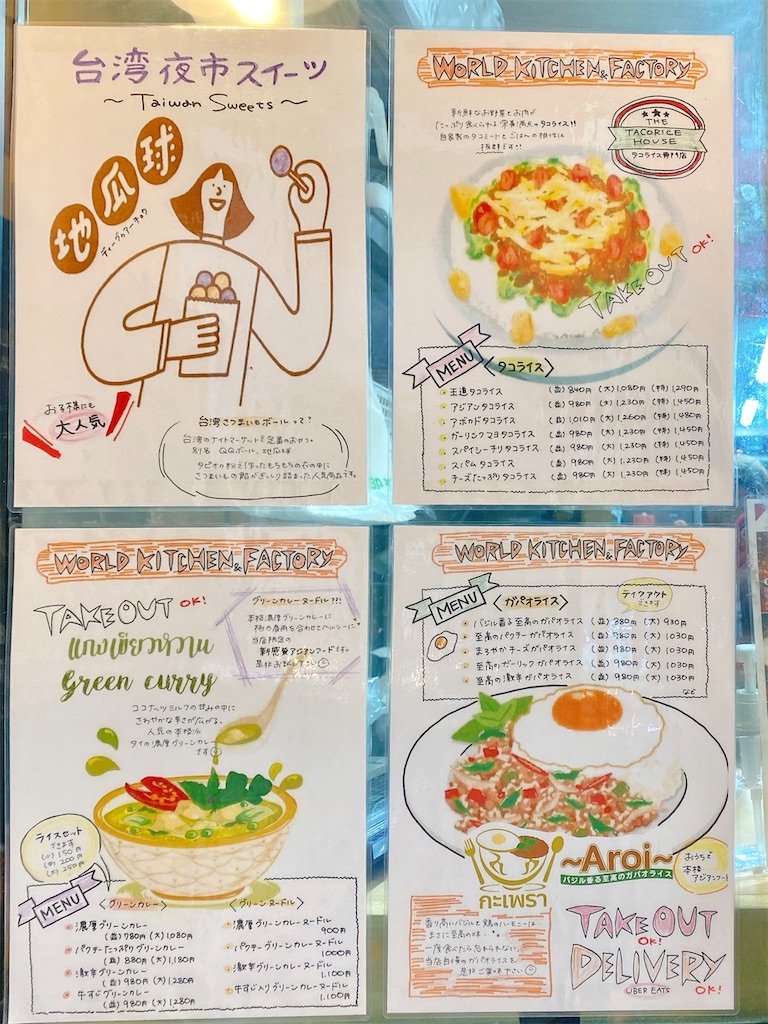 台湾夜市スイーツ
～Taiwan Sweets～
地瓜球
ディーグアチョウ
お子様にも
大人気
台湾さつまいもボールって?
台湾のナイトマーケットで定番のおやつ。
別名 QQボール、地瓜球
タピオカ粉で作ったもちもちの衣の中に
さつまいもの餡がぎっしり詰まった人気商品です。
WORLD KITCHEN & FACTORY
新鮮なお野菜とお肉が
たっぷり食べられる栄養満点のタコライス!!
自家製のタコミートとごはんの相性は
抜群です!!
THE
TACORICE
HOUSE
タコライス専門店
TAKE OUT OK!
MENU
〈タコライス〉
王道タコライス (並) 840円 (大) 1,080円 (特) 1,290円
アジアンタコライス (並) 980円 (大) 1,230円 (特) 1,450円
アボカドタコライス (並) 1,010円 (大) 1,260円 (特) 1,480円
ガーリックマヨタコライス (並) 980円 (大) 1,230円 (特) 1,450円
スパイシーチリタコライス (並) 980円 (大) 1,230円 (特) 1,450円
スパムタコライス (並) 980円 (大) 1,230円 (特) 1,450円
チーズたっぷりタコライス (並) 980円 (大) 1,230円 (特) 1,450円
WORLD KITCHEN & FACTORY
TAKE OUT OK!
แกงเขียวหวาน
Green curry
グリーンカレーヌードル??!
本格濃厚グリーンカレーに
当店限定の
新感覚アジアンフードです。
是非お試し下さい
ココナッツミルクの甘みの中に
さわやかな辛さが広がる、
人気の本格派
タイの濃厚グリーンカレー
です
ライスセット
できます
(小) 150円
(中) 200円
(大) 250円
MENU
〈グリーンカレー〉
濃厚グリーンカレー
(並) 780円 (大) 1,080円
パクチーたっぷりグリーンカレー
(並) 880円 (大) 1,180円
激辛グリーンカレー
(並) 980円 (大) 1,280円
牛すじグリーンカレー
(並) 980円 (大) 1,280円
〈グリーンカレーヌードル〉
濃厚グリーンカレーヌードル
900円
パクチーグリーンカレーヌードル
1,000円
激辛グリーンカレーヌードル
1,100円
牛すじ入りグリーンカレーヌードル
1,100円
WORLD KITCHEN & FACTORY
MENU
〈ガパオライス〉
テイクアウト
できます
バジル香る至高のガパオライス (並) 880円 (大) 930円
至高のパクチーガパオライス (並) 980円 (大) 1,030円
まろやかチーズガパオライス (並) 980円 (大) 1,030円
至高のガーリックガパオライス (並) 980円 (大) 1,030円
至高の激辛ガパオライス (並) 980円 (大) 1,030円
など
กะเพรา
~Aroi~
バジル香る至高のガパオライス
おうちで
本格
アジアンフード
香り高いバジルと鶏のハーモニーは
まさに至高の味…
一度食べたら忘れられない、
当店自慢のガパオライスを
是非ご賞味下さい
TAKE OUT
OK!
DELIVERY
UBER EATS
OK!